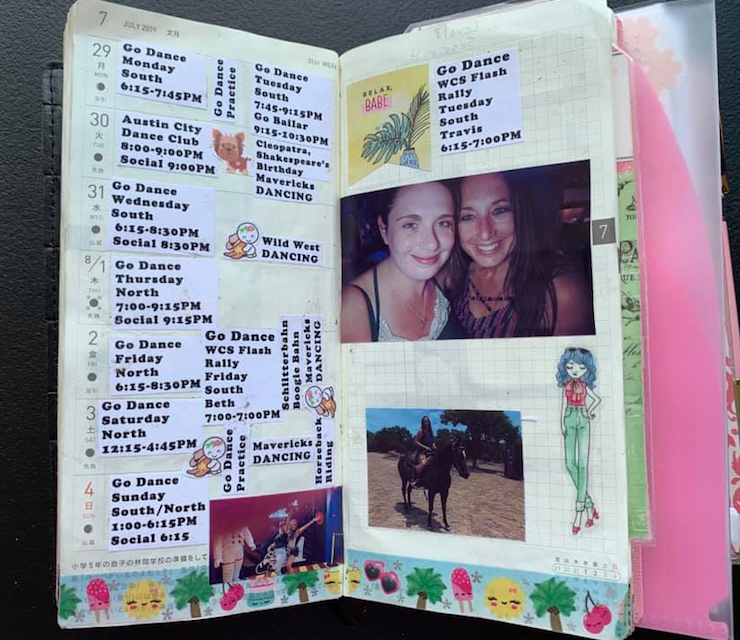 7 JULY 2019 文月
31st WEEK
29
月
MON
友引
Go Dance
Monday
South
6:15-7:45PM
Go Dance
Practice
Go Dance
Tuesday
South
7:45-9:15PM
Go Bailar
9:15-10:30PM
Cleopatra,
Shakespeare's
Birthday
Mavericks
DANCING
30
火
TUE
先負
Austin City
Dance Club
8:00-9:00PM
Social 9:00PM
31
水
WED
仏滅
Go Dance
Wednesday
South
6:15-8:30PM
Social 8:30PM
Wild West
DANCING
8/1
木
THU
先勝
Go Dance
Thursday
North
7:00-9:15PM
Social 9:15PM
2
金
FRI
友引
Go Dance
Friday
North
6:15-8:30PM
Go Dance
WCS Flash
Rally
Friday
South
Beth
7:00-7:00PM
Schlitterbahn
Boogie Bahn
Mavericks
DANCING
3
土
SAT
先負
Go Dance
Saturday
North
12:15-4:45PM
Go Dance
Practice
Mavericks
DANCING
Horseback
Riding
4
日
SUN
仏滅
Go Dance
Sunday
South/North
1:00-6:15PM
Social 6:15
小学5年の息子の林間学校の準備をして
RELAX,
BABE
Go Dance
WCS Flash
Rally
Tuesday
South
Travis
6:15-7:00PM
7
月 火 水 木 金 土 日
29 30 31 1 2 3 4